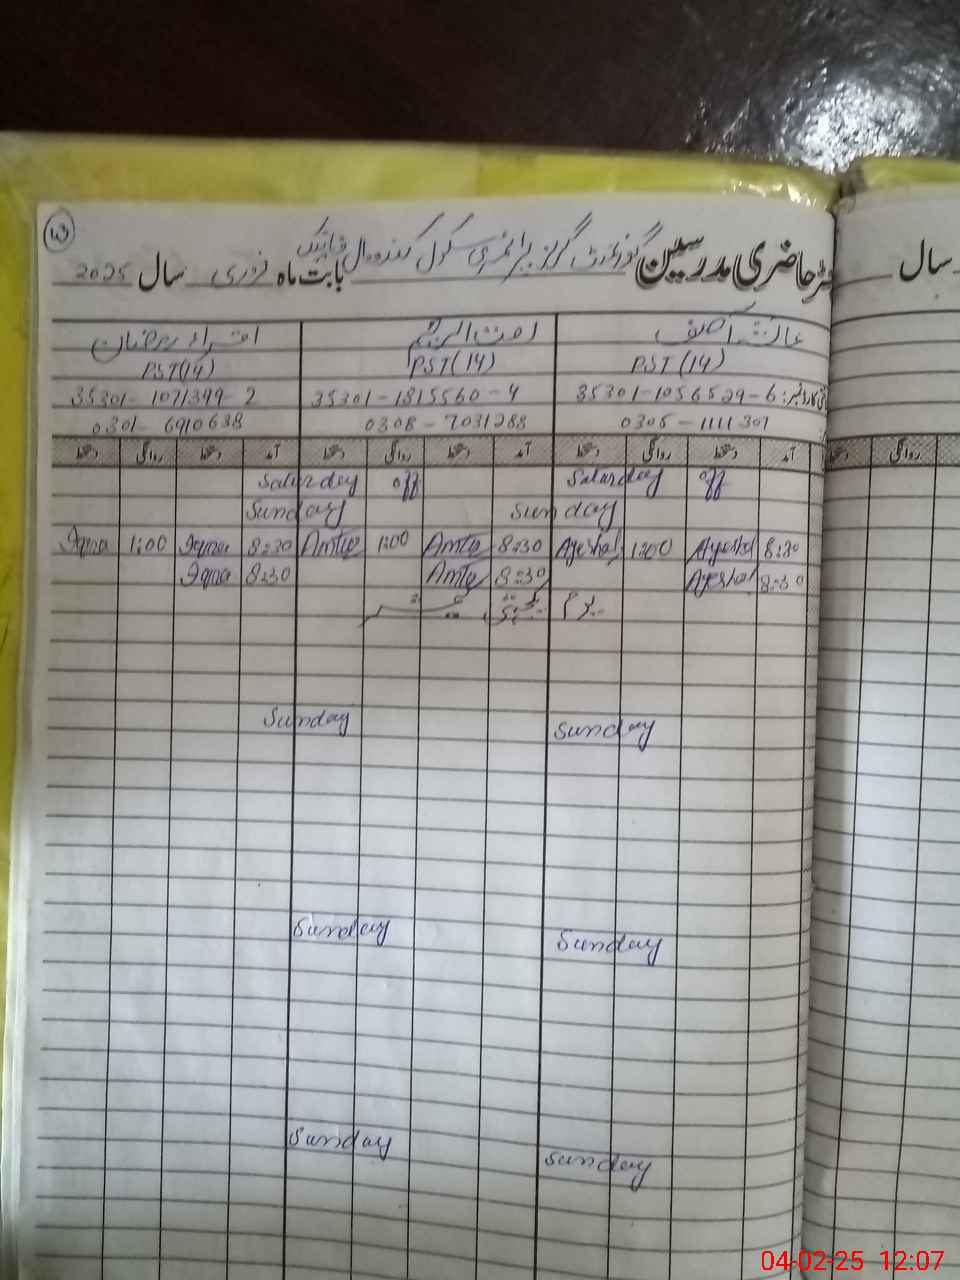 43
رجسٹر حاضری مدرسین گورنمنٹ گرلز پرائمری سکول بابت ماہ فروری سال 2025
سال
عائشہ آصف امت الکریم اقراء رمضان
PST (14) PST (14) PST (14)
35301-1056529-6 35301-1815560-4 35301-1071399-2
0305-1111307 0308-7031288 0301-6910638
آمد دستخط روانگی دستخط آمد دستخط روانگی دستخط آمد دستخط روانگی دستخط
روانگی دستخط
Saturday off Saturday off
Sunday Sunday
Iqra 1:00 Iqra 8:30 Amta 1:00 Amta 8:30 Ayesha 1:00 Ayesha 8:30
Iqra 8:30 Amta 8:30 Ayesha 8:30
یوم یکجہتی کشمیر
Sunday Sunday
Sunday Sunday
Sunday Sunday
04-02-25 12:07